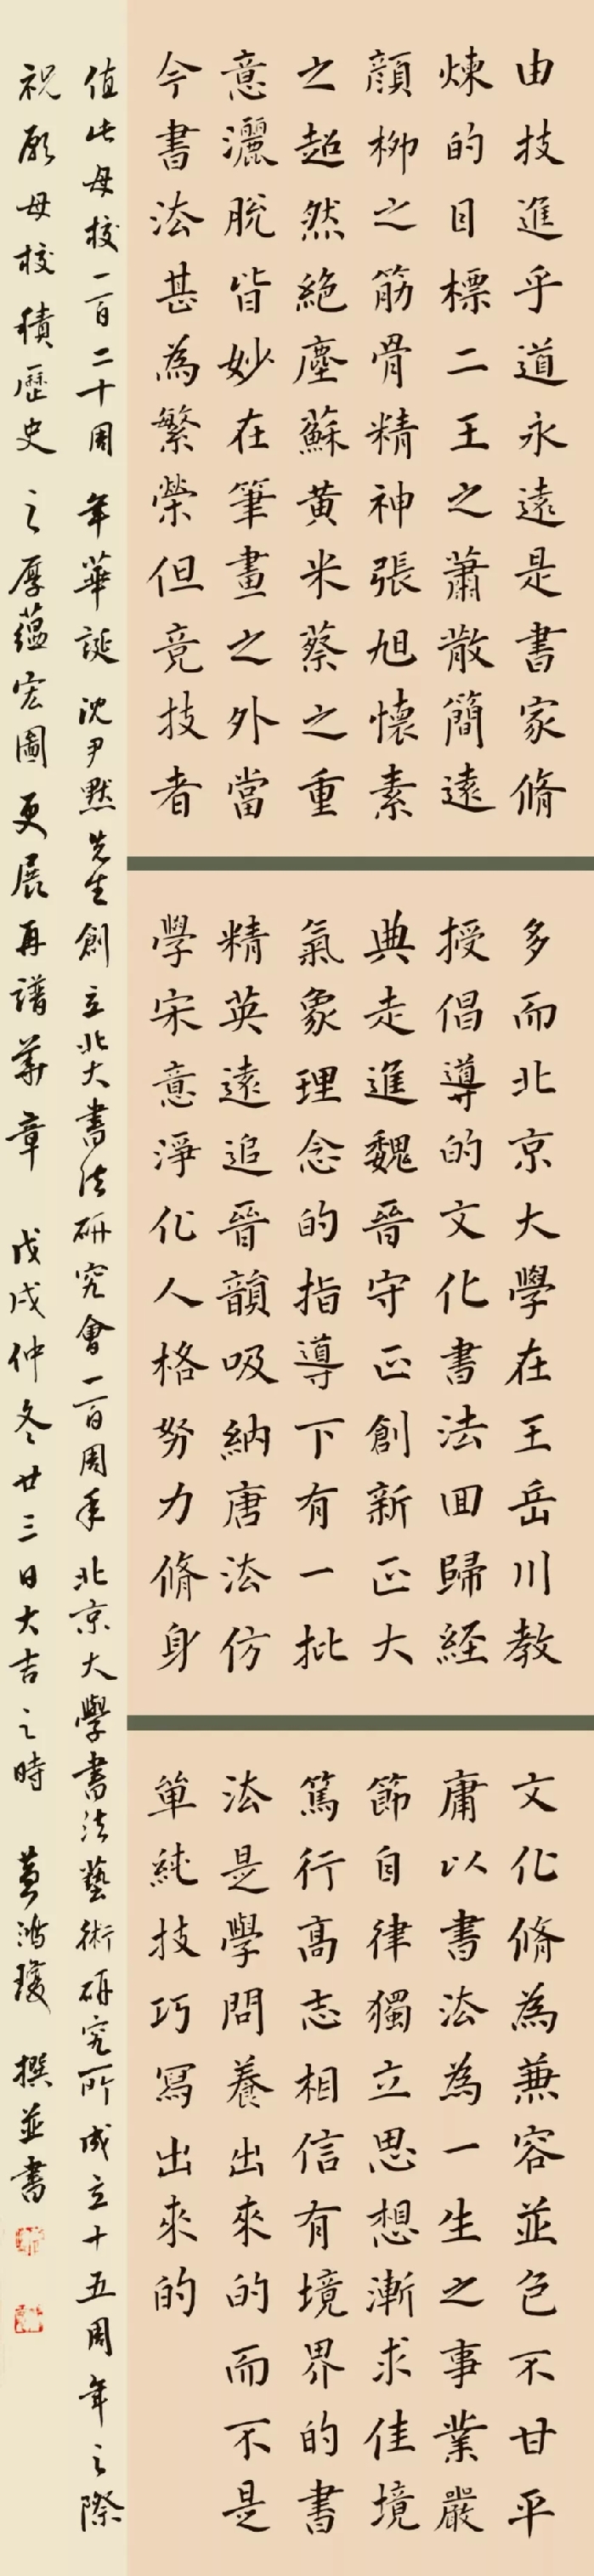 由技進乎道永遠是書家脩
煉的目標二王之蕭散簡遠
顔柳之筋骨精神張旭懷素
之超然絶塵蘇黄米蔡之重
意灑脫皆妙在筆畫之外當
今書法甚為繁榮但竞技者
多而北京大學在王岳川教
授倡導的文化書法回歸経
典走進魏晉守正創新正大
氣象理念的指導下有一批
精英遠追晉韻吸納唐法仿
學宋意淨化人格努力脩身
文化脩為兼容並色不甘平
庸以書法為一生之事業嚴
節自律獨立思想漸求佳境
篤行高志相信有境界的書
法是學問養出來的而不是
单純技巧寫出來的
值此母校一百二十周年華誕沈尹默先生創立北大書法研究會一百周年北京大學書法藝術研究所成立十五周年之際
祝願母校積歷史之厚蘊宏圖更展再譜華章 戊戌仲冬廿三日大吉之時 黄鴻瓊 撰並書